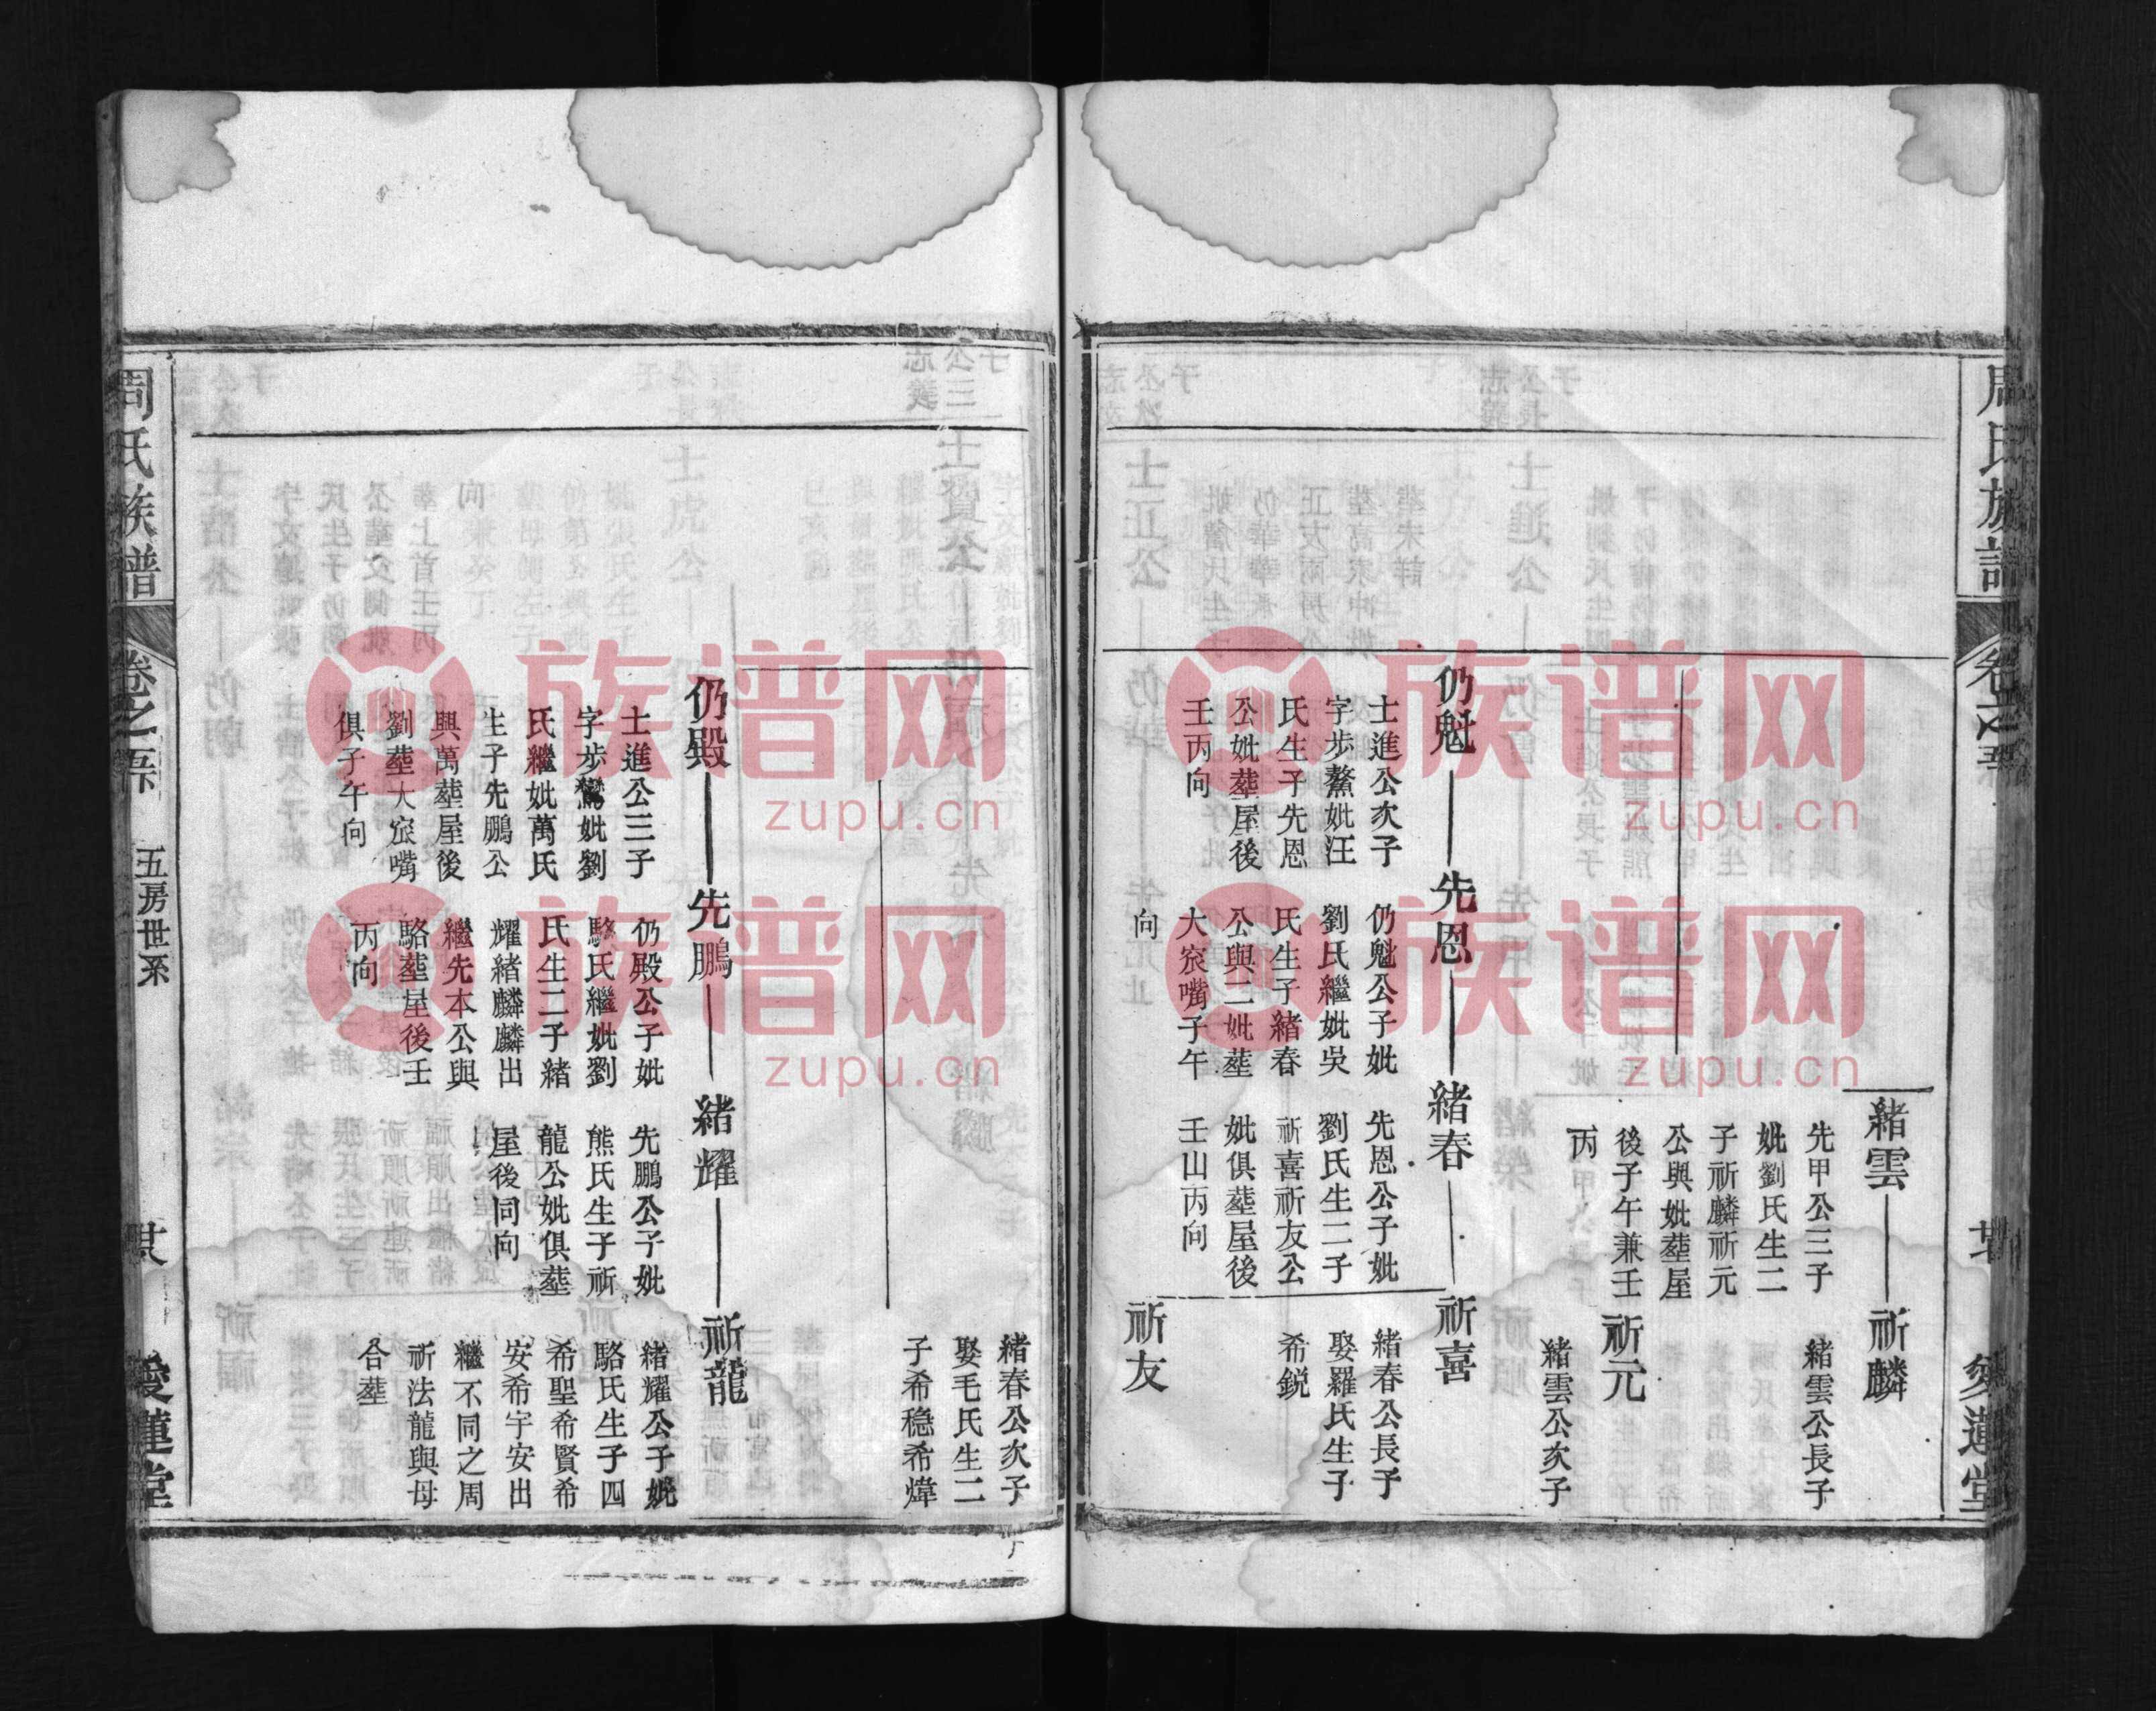 周氏族譜
卷之五
愛蓮堂
緒雲
先甲公三子
妣劉氏生二
子祈麟祈元
公與妣塟屋
後子午兼壬
丙
祈麟
緒雲公長子
祈元
緒雲公次子
仍魁
士進公次子
字步鰲妣汪
氏生子先恩
公妣塟屋後
壬丙向
先恩
仍魁公子妣
劉氏繼妣吳
氏生子緒春
公與二妣塟
大窊嘴子午
向
緒春
先恩公子妣
劉氏生二子
祈喜祈友公
妣俱塟屋後
壬山丙向
祈喜
緒春公長子
娶羅氏生子
希銳
祈友
緒春公次子
娶毛氏生二
子希穩希煒
仍殿
士進公三子
字步鸞妣劉
氏繼妣萬氏
生子先鵬公
與萬塟屋後
劉塟大窊嘴
俱子午向
先鵬
仍殿公子妣
駱氏繼妣劉
氏生二子緒
耀緒麟麟出
繼先本公與
駱塟屋後壬
丙向
緒耀
先鵬公子妣
熊氏生子祈
龍公妣俱塟
屋後同向
祈龍
緒耀公子妣
駱氏生子四
希聖希賢希
安希宇安出
繼不同之周
祈法龍與母
合塟
周氏族譜
卷之五
五房世系
愛蓮堂
族谱网
zupu.cn
族谱网
zupu.cn
族谱网
zupu.cn
族谱网
zupu.cn